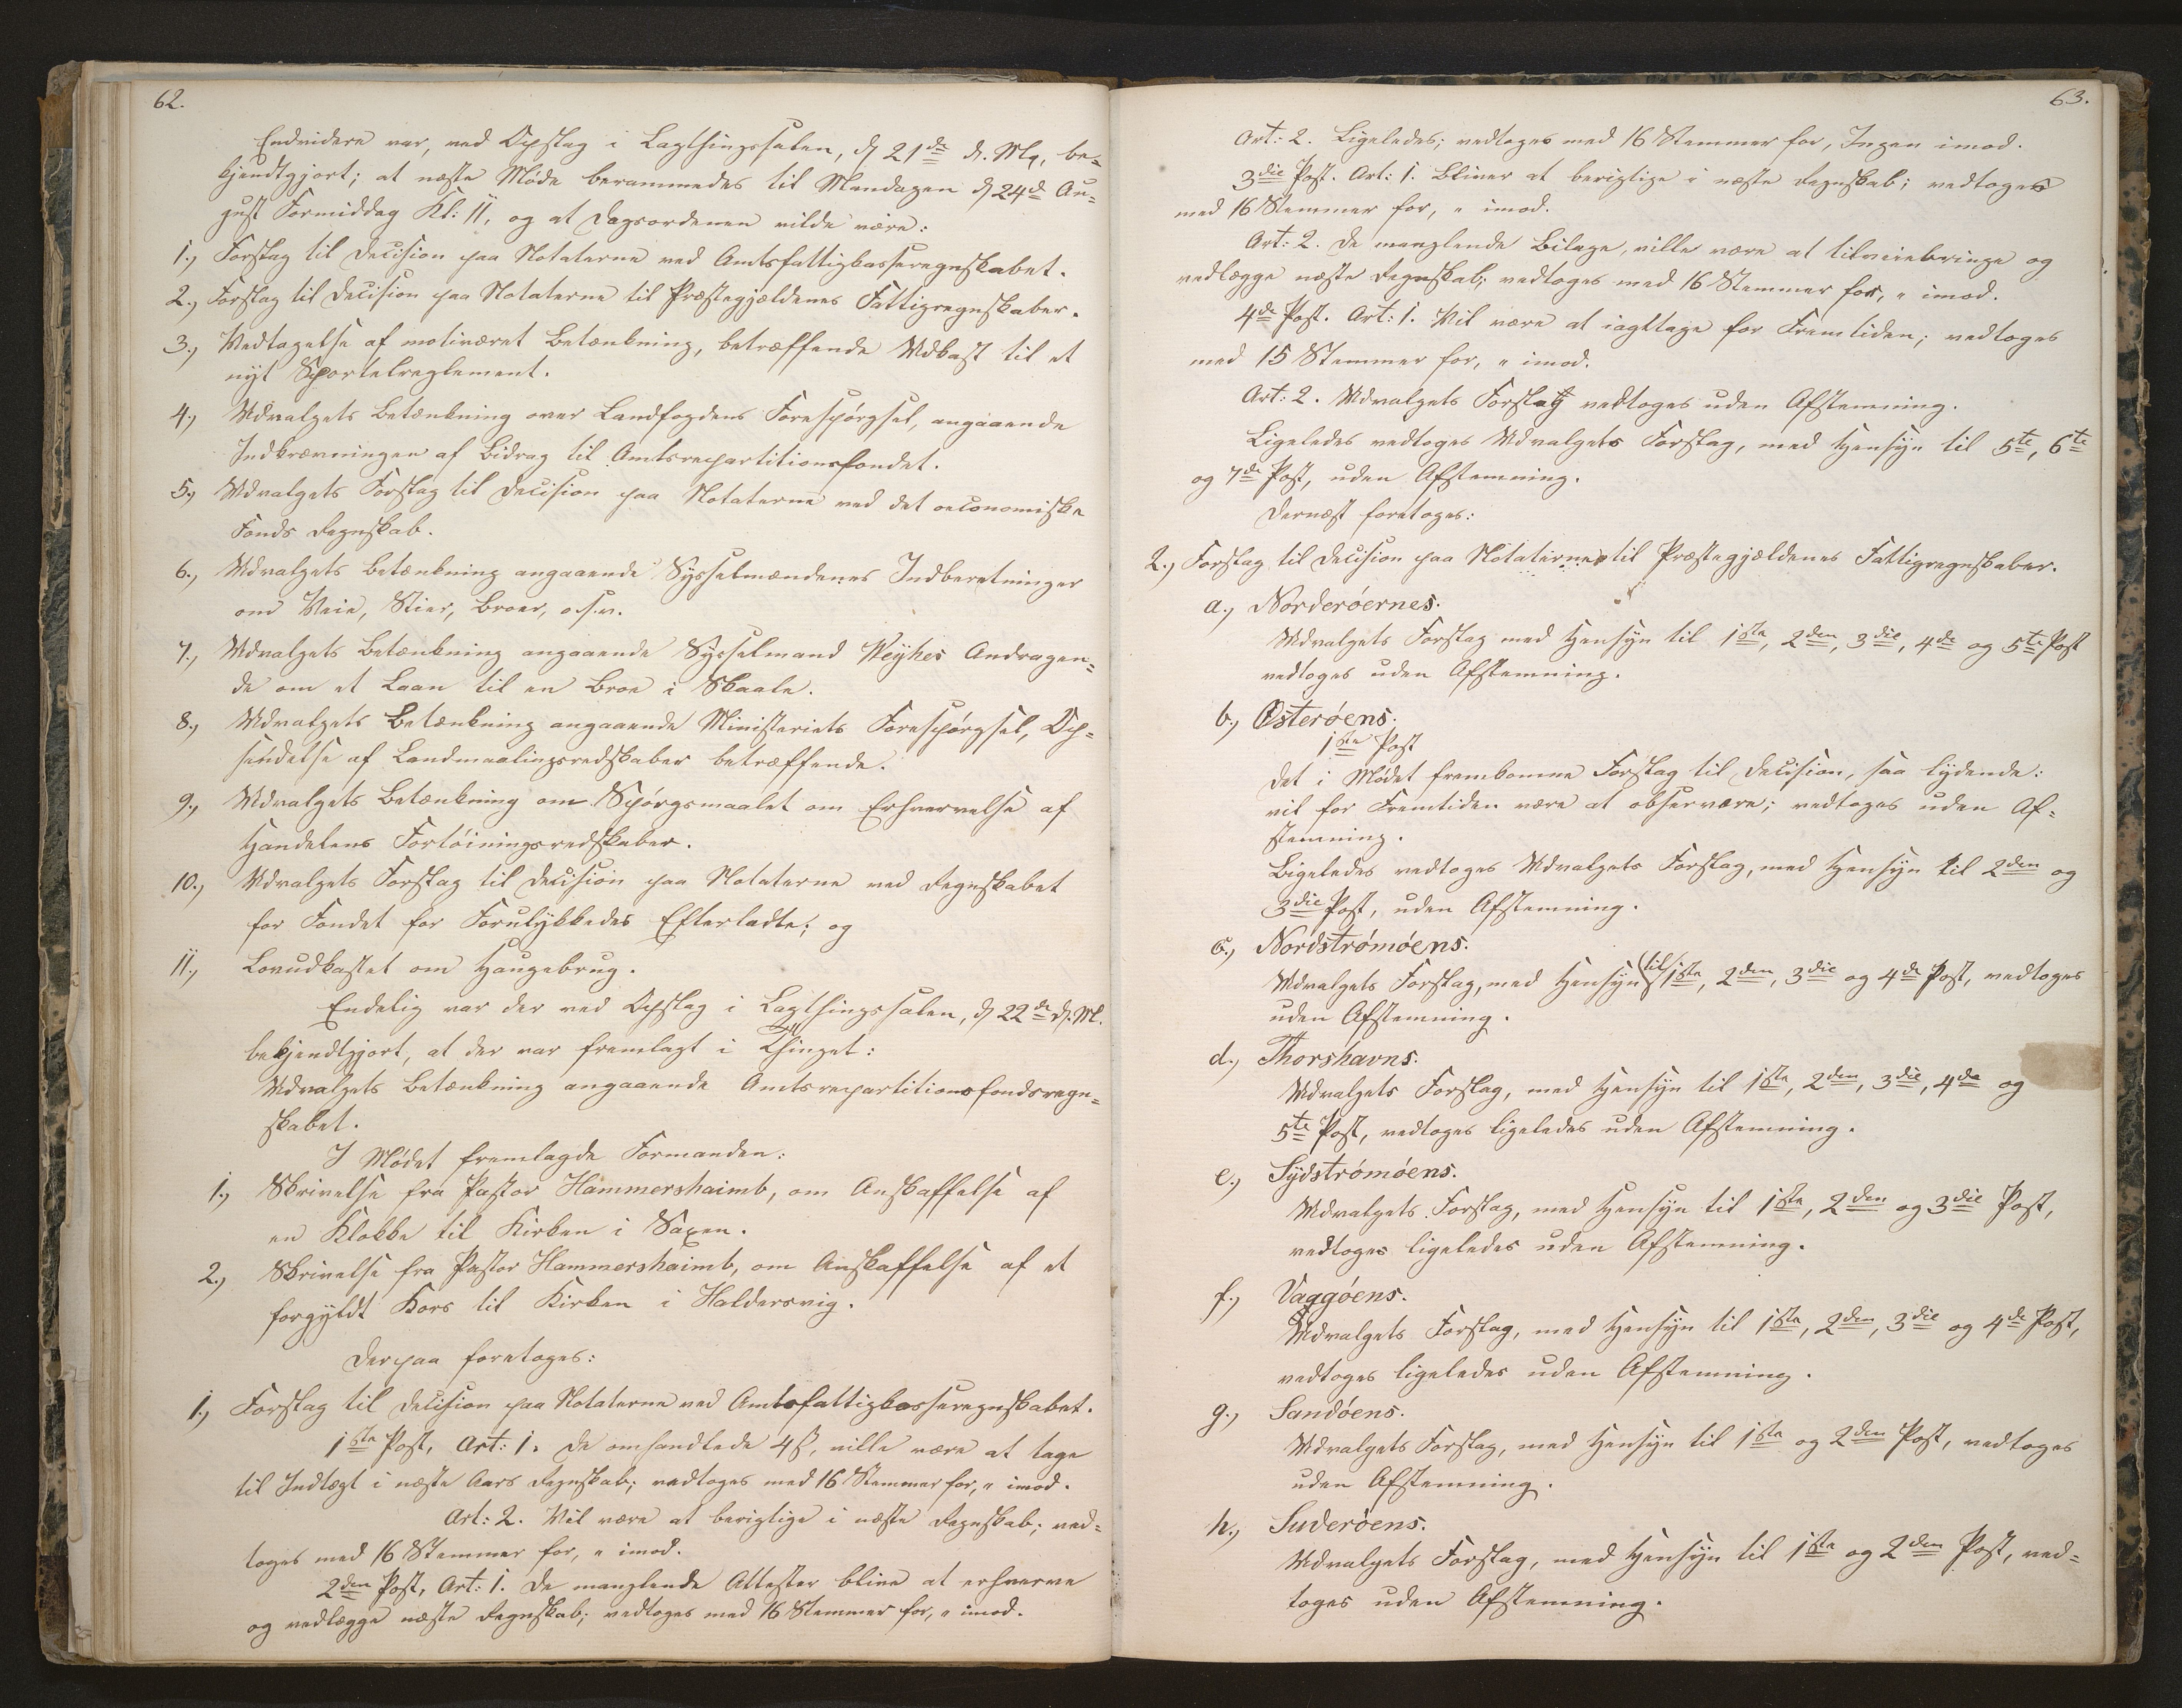 62.
Endvidere var, ved Opslag i Lagthingssalen, d. 21de ds. Md., be-
kjendtgjort; at næste Møde berammedes til Mandagen d. 24de Au-
gust Formiddag Kl: 11, og at Dagsordenen vilde være:
1., Forslag til Decision paa Notaterne ved Amtsfattigkasseregnskabet.
2., Forslag til Decision paa Notaterne til Præstegjældenes Fattigregnskaber.
3., Vedtagelse af motiveret Betænkning, betræffende Udkast til et
nyt Sportelreglement.
4., Udvalgets Betænkning over Landfogdens Forespørgsel, angaaende
Indkrævningen af Bidrag til Amtsrepartitionsfondet.
5., Udvalgets Forslag til Decision paa Notaterne ved det oeconomiske
Fonds Regnskab.
6., Udvalgets Betænkning angaaende Sysselmændenes Indberetninger
om Veie, Stier, Broer, o.s.v.
7., Udvalgets Betænkning angaaende Sysselmand Weyhes Andragen-
de om et Laan til en Broe i Skaale.
8., Udvalgets Betænkning angaaende Ministeriets Forespørgsel, Op-
sendelse af Landmaalingsredskaber betræffende.
9., Udvalgets Betænkning om Spørgsmaalet om Erhvervelse af
Handelens Fortøiningsredskaber.
10., Udvalgets Forslag til Decision paa Notaterne ved Regnskabet
for Fondet for Forulykkedes Efterladte; og
11., Lovudkastet om Haugebrug.
Endelig var der ved Opslag i Lagthingssalen, d. 22de ds. M.
bekjendtgjort, at der var fremlagt i Thinget:
Udvalgets Betænkning angaaende Amtsrepartitionsfondsregn-
skabet.
I Mødet fremlagde Formanden:
1., Skrivelse fra Pastor Hammershaimb, om Anskaffelse af
en Klokke til Kirken i Saxen.
2., Skrivelse fra Pastor Hammershaimb, om Anskaffelse af et
forgyldt Kors til Kirken i Haldersvig.
Derpaa foretoges:
1., Forslag til Decision paa Notaterne ved Amtsfattigkasseregnskabet.
1ste Post, Art: 1. De omhandlede 4 ß, ville være at tage
til Indtægt i næste Aars Regnskab; vedtoges med 16 Stemmer for, " imod.
Art: 2. Vil være at berigtige i næste Regnskab; ved-
toges med 16 Stemmer for, " imod.
2den Post, Art: 1. De manglende Attester blive at erhverve
og vedlægge næste Regnskab; vedtoges med 16 Stemmer for, " imod.
63.
Art: 2. Ligeledes; vedtoges med 16 Stemmer for, Ingen imod.
3die Post. Art: 1. Bliver at berigtige i næste Regnskab; vedtoges
med 16 Stemmer for, " imod.
Art: 2. De manglende Bilage, ville være at tilveiebringe og
vedlægge næste Regnskab; vedtoges med 16 Stemmer for, " imod.
4de Post. Art: 1. Vil være at iagttage for Fremtiden; vedtoges
med 15 Stemmer for, " imod.
Art: 2. Udvalgets Forslag vedtoges uden Afstemning.
Ligeledes vedtoges Udvalgets Forslag, med Hensyn til 5te, 6te
og 7de Post, uden Afstemning.
Dernæst foretoges:
2., Forslag til Decision paa Notaterne til Præstegjældenes Fattigregnskaber.
a., Norderøernes.
Udvalgets Forslag med Hensyn til 1ste, 2den, 3die, 4de og 5te Post
vedtoges uden Afstemning.
b., Østerøens.
1ste Post
Det i Mødet fremkomne Forslag til Decision, saa lydende:
vil for Fremtiden være at observere; vedtoges uden Af-
stemning.
Ligeledes vedtoges Udvalgets Forslag, med Hensyn til 2den og
3die Post, uden Afstemning.
c., Nordstrømøens.
Udvalgets Forslag, med Hensyn til 1ste, 2den, 3die og 4de Post, vedtoges
uden Afstemning.
d., Thorshavns.
Udvalgets Forslag, med Hensyn til 1ste, 2den, 3die, 4de og
5te Post, vedtoges ligeledes uden Afstemning.
e., Sydstrømøens.
Udvalgets Forslag, med Hensyn til 1ste, 2den og 3die Post,
vedtoges ligeledes uden Afstemning.
f., Vaagøens.
Udvalgets Forslag, med Hensyn til 1ste, 2den, 3die og 4de Post,
vedtoges ligeledes uden Afstemning.
g., Sandøens.
Udvalgets Forslag, med Hensyn til 1ste og 2den Post, vedtoges
uden Afstemning.
h., Suderøens.
Udvalgets Forslag, med Hensyn til 1ste og 2den Post, ved-
toges uden Afstemning.